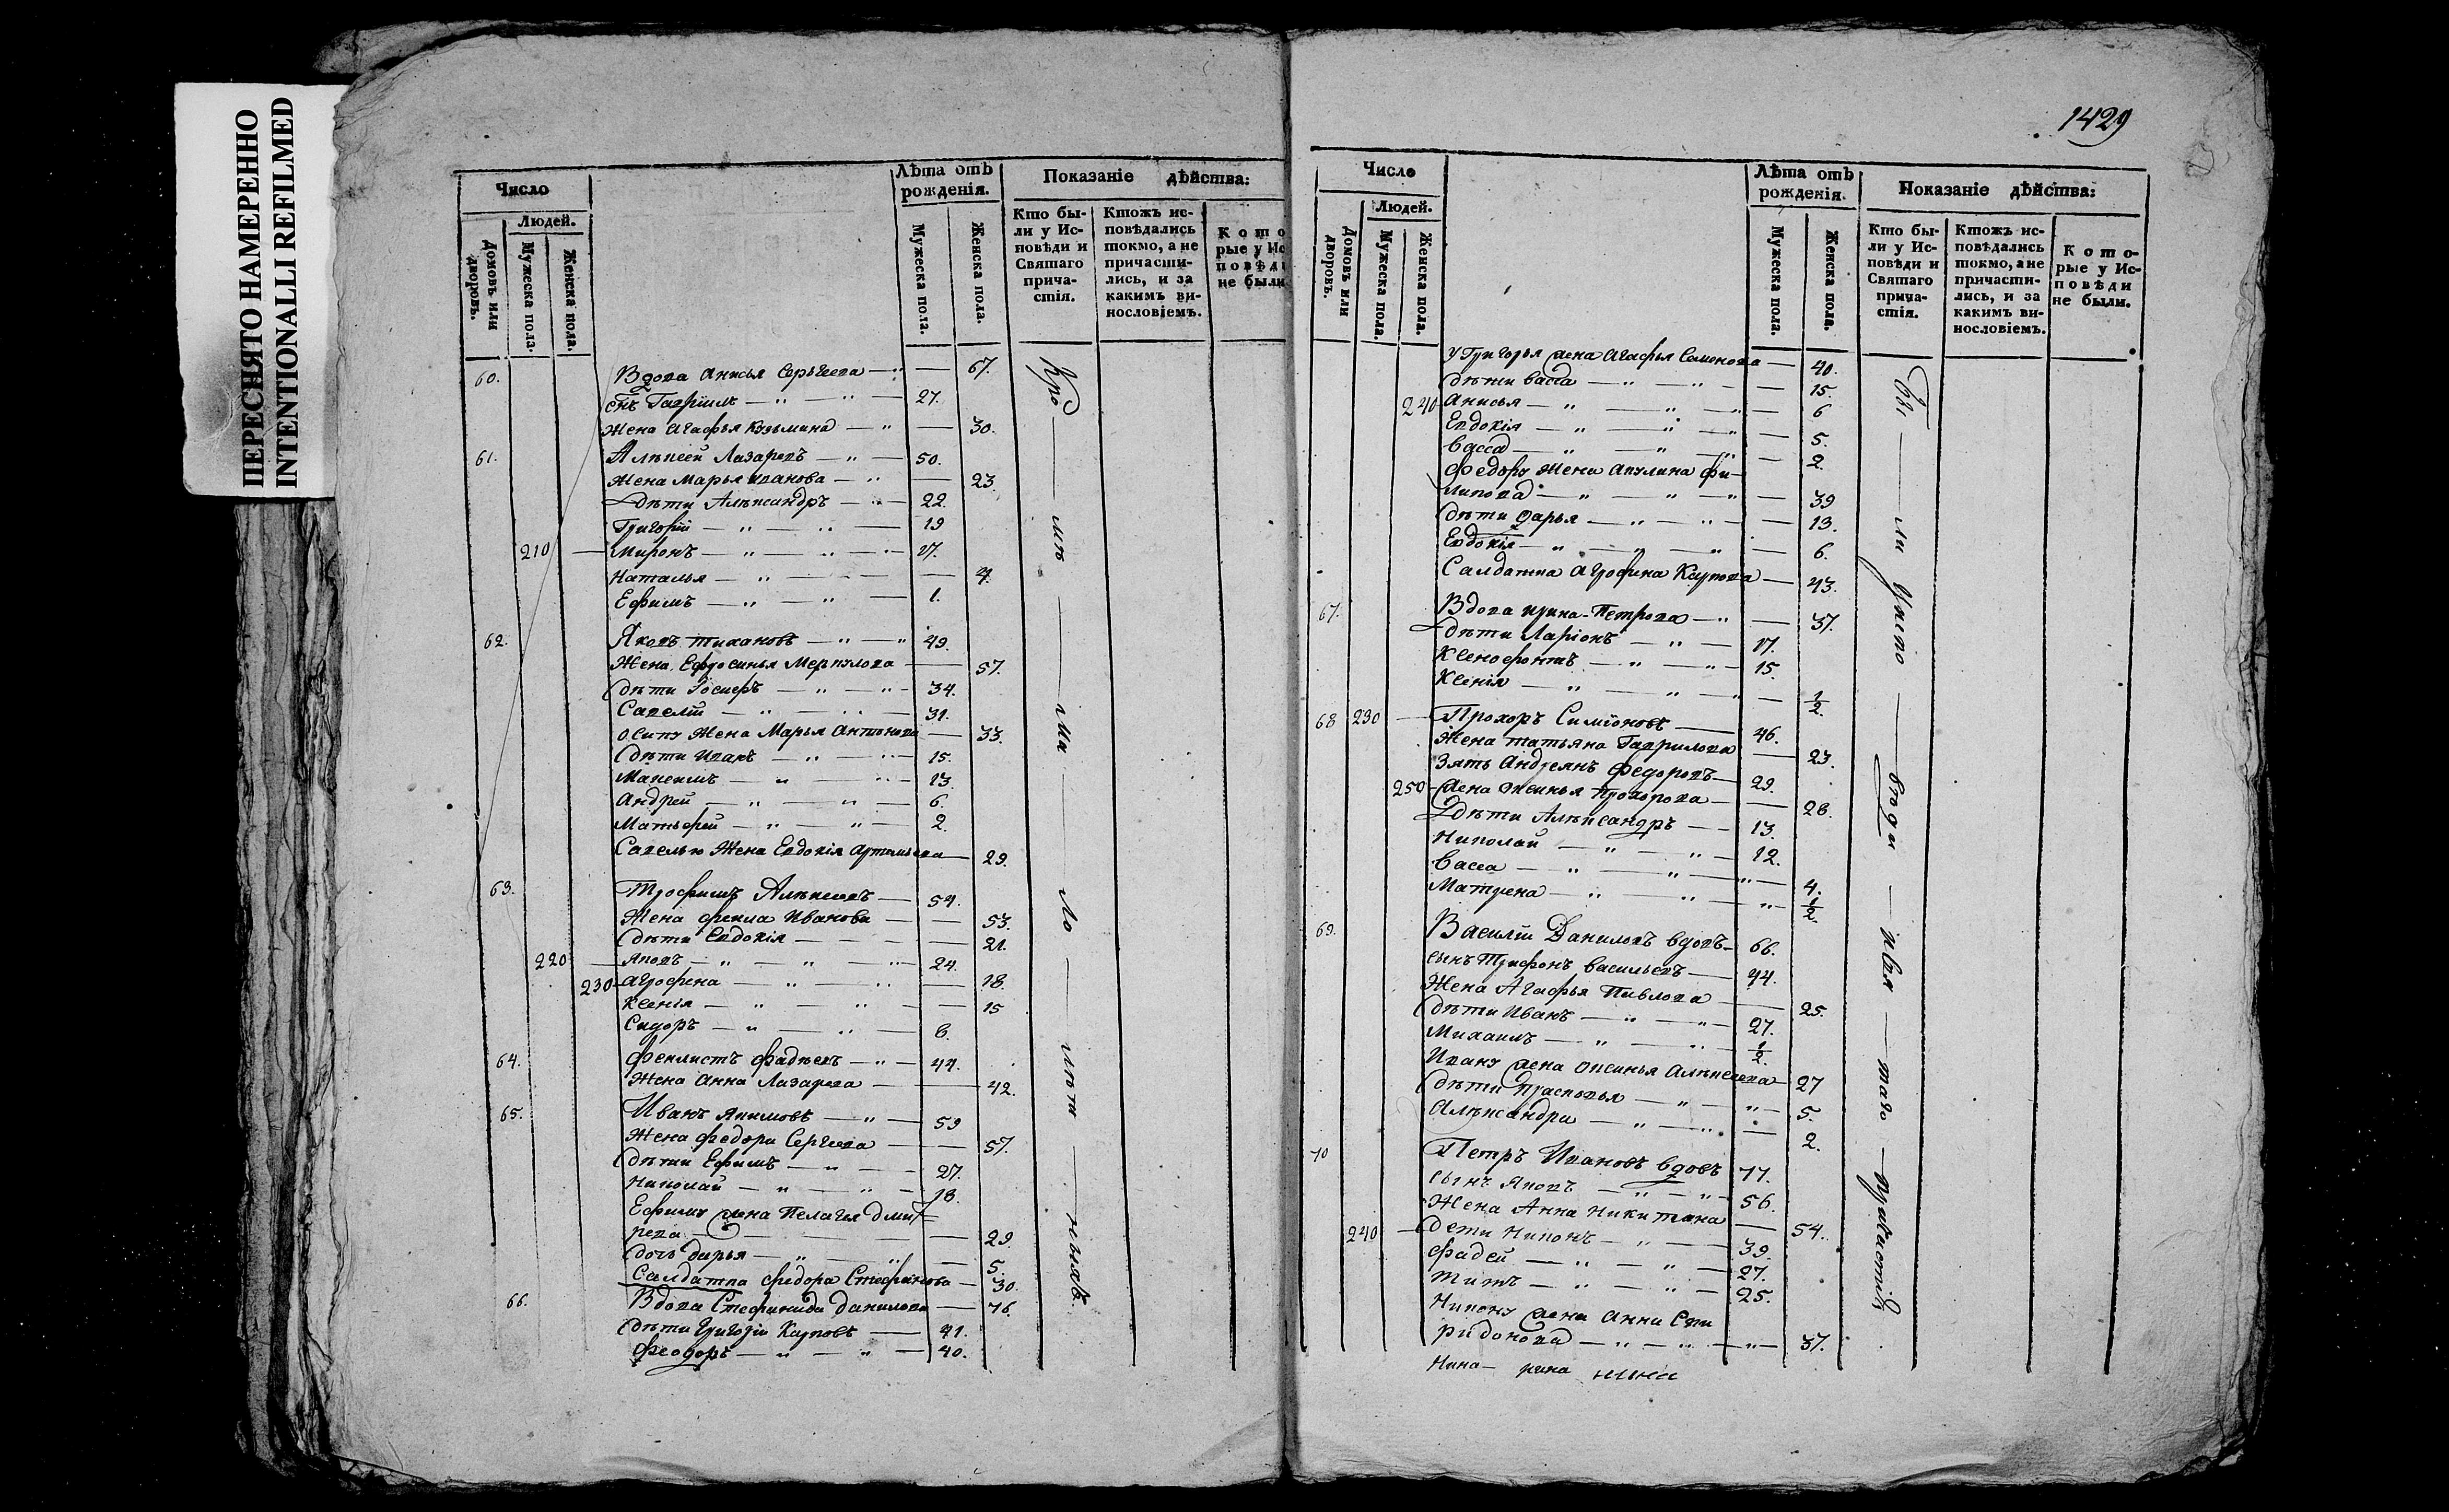 ПЕРЕСНЯТО НАМЕРЕННО
INTENTIONALLI REFILMED
Число
Лѣта отъ рожденія.
Показаніе дѣйства:
Людей.
Домовъ или дворовъ.
Мужеска пола.
Женска пола.
Мужеска пола.
Женска пола.
Кто бы-
ли у Ис-
повѣди и
Святаго
прича-
стія.
Ктожъ ис-
повѣдались
токмо, а не
причасти-
лись, и за
какимъ ви-
нословіемъ.
Кото
рые у Ис
повѣди
не были
60. Вдова Анисья Сергѣева 67.
снъ Гаврiилъ 27.
Жена Агафья Кузьмина 30.
61. Алѣксѣй Лазаревъ 50.
Жена Марья Иванова 23
Дѣти Алѣксандръ 22.
Григорій 19
210 Миронъ 17.
Наталья 4.
Ефимъ 1.
62. Яковъ Тихановъ 49.
Жена Ефросинья Меркулова 57.
Дѣти Іосифъ 34.
Савелій 31.
Осипу Жена Марья Антонова 33.
Дѣти Иванъ 15.
Максимъ 13.
Андрей 6.
Матьфей 2.
Савелью Жена Евдокія Артемьева 29.
63. Трофимъ Алѣксеевъ 54.
Жена Фекла Иванова 53.
Дѣти Евдокія 21.
220 Яковъ 24.
230 Агрофена 18.
Ксенія 15
Сидоръ 6.
64. Феклистъ Фадѣевъ 44.
Жена Анна Лазарева 42.
65. Иванъ Якимовъ 59
Жена Федора Сергѣева 57.
Дѣти Ефимъ 27.
Николай 18.
Ефиму жена Пелагея Дмит
рева 29.
Дочь Дарья 5.
Салдатка Федора Стефанова 30.
66. Вдова Стефанида Данилова 76.
Дѣти Григорій Карповъ 41.
Феодоръ 40.
1429
Число
Лѣта отъ рожденія.
Показаніе дѣйства:
Людей.
Домовъ или дворовъ.
Мужеска пола.
Женска пола.
Мужеска пола.
Женска пола.
Кто бы-
ли у Ис-
повѣди и
Святаго
прича-
стія.
Ктожъ ис-
повѣдались
токмо, а не
причасти-
лись, и за
какимъ ви-
нословіемъ.
Кото-
рые у Ис-
повѣди
не были.
У Григорья жена Агафья Семенова 40.
Дѣти Васса 15.
240 Анисья 6
Евдокія 5.
Васса 2.
Федору Жена Акулина Фи-
липова 39
Дѣти Дарья 13.
Евдокія 6.
Салдатка Агрофина Карпова 43.
67. Вдова Ирина Петрова 37.
Дѣти Ларіонъ 17.
Ксенофонтъ 15.
Ксенія 1/2.
68 230 Прохоръ Симіоновъ 46.
Жена Татьяна Гаврилова 23.
Зять Андреянъ Федоровъ 29.
250 Жена Оксинья Прохорова 28.
Дѣти Алѣксандръ 13.
Николай 12.
Васса 4.
Матрена 1/2.
69. Василій Даниловъ вдовъ 66.
сынъ Трифонъ Васильевъ 44.
Жена Агафья Павлова 25.
Дѣти Иванъ 27.
Михаилъ 1/2.
Ивану жена Оксинья Алѣксеева 27
Дѣти Прасковья 5.
Алѣксандра 2.
70 Петръ Ивановъ вдовъ 77.
сынъ Яковъ 56.
Жена Анна Никитина 54.
240 Дети Никонъ 39.
Фадей 27.
Титъ 25.
Никону жена Анна Спи
ридонова 37.